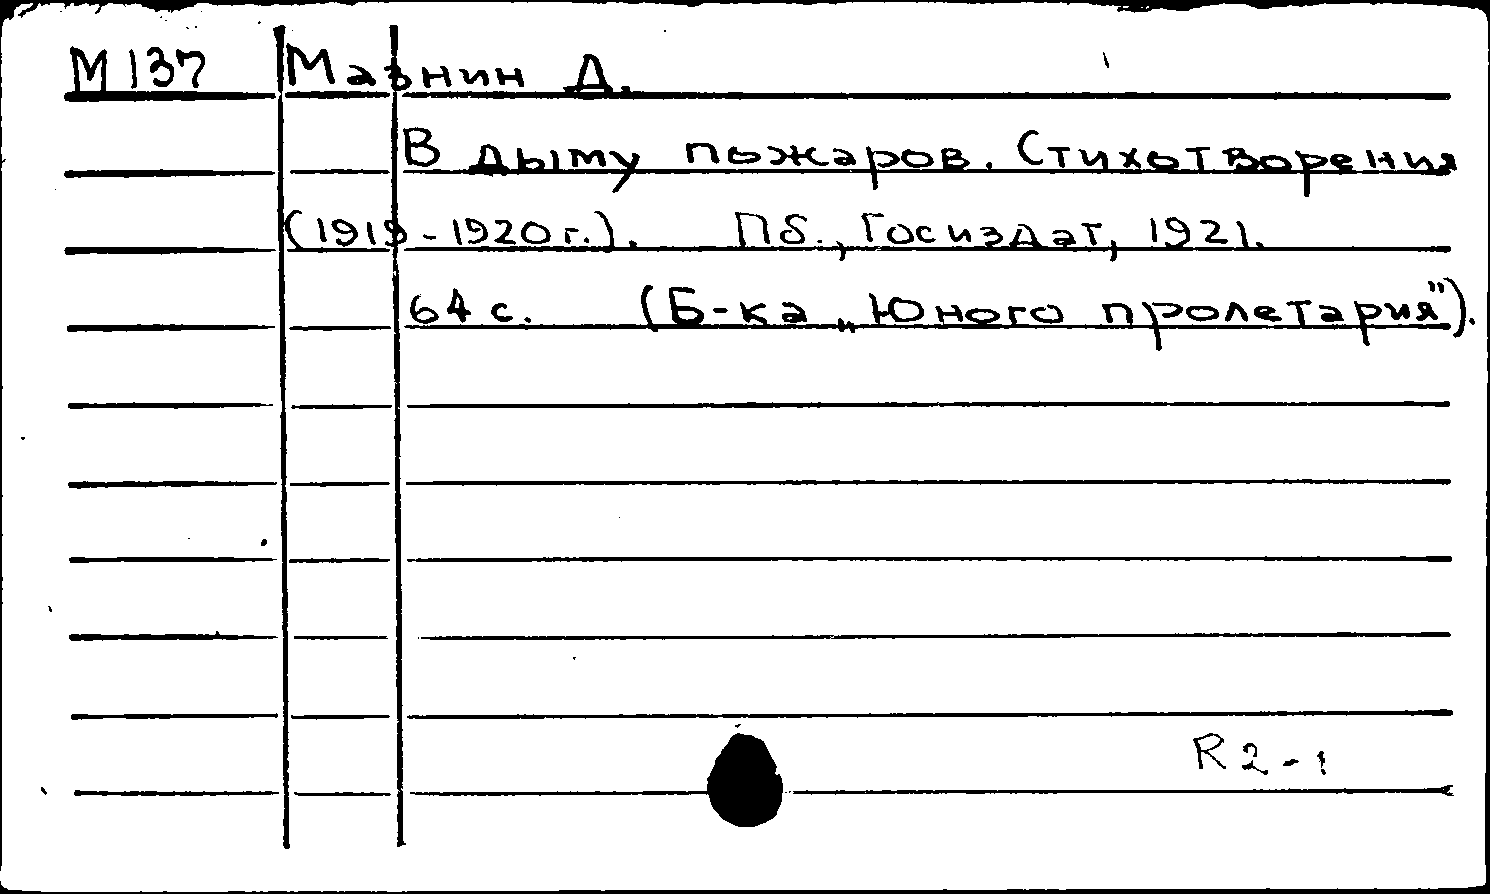 М137 Мазнин Д.
В дыму пожаров. Стихотворения
(1919-1920 г.). Пб., Госиздат, 1921.
64 с. (Б-ка „Юного пролетария").
R2-1